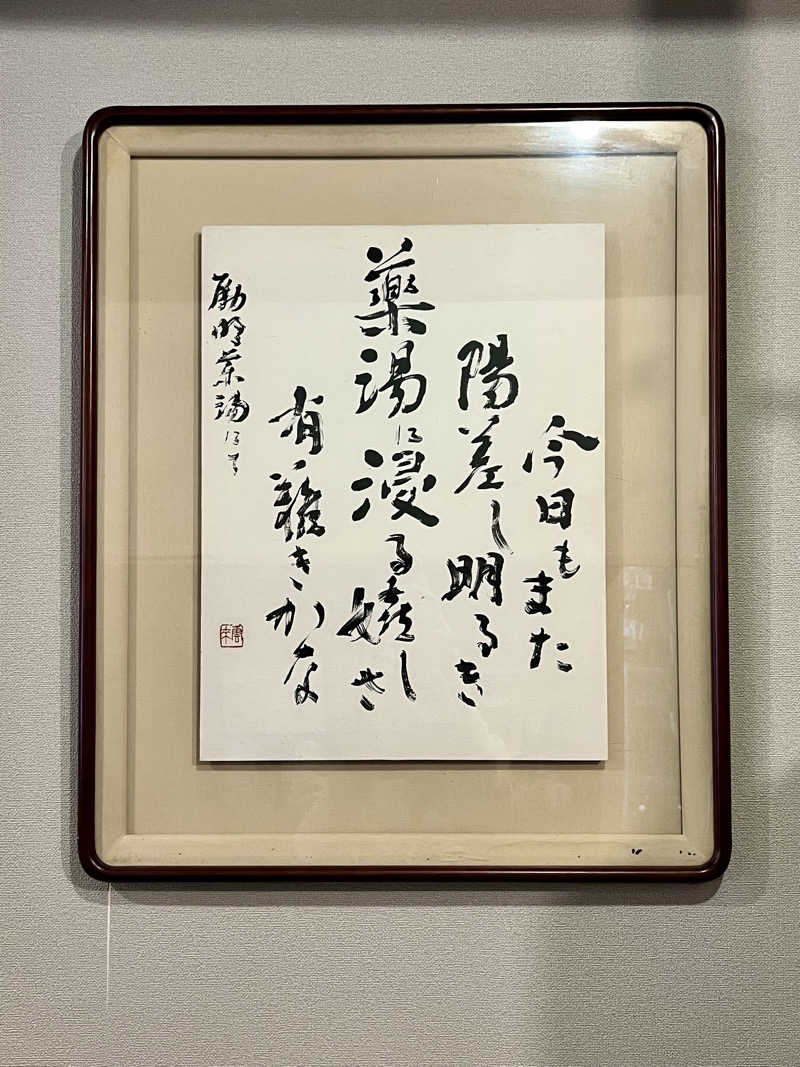 今日もまた
陽差し明るき
薬湯に浸る嬉しさ
有難きかな
励明薬湯にて